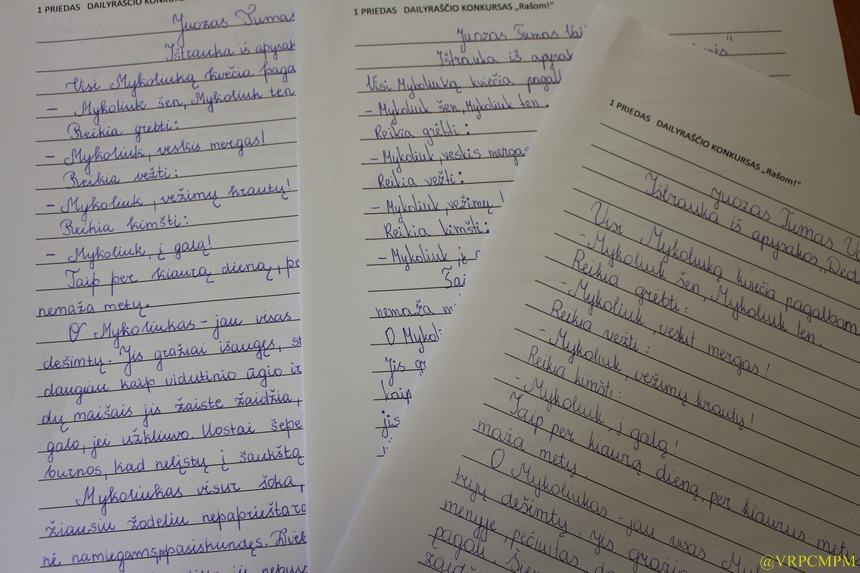 1 PRIEDAS DAILYRAŠČIO KONKURSAS
Juozas Tumas
Ištrauka iš apysak
Visi Mykoliuką kviečia paga
– Mykoliuk šen, Mykoliuk ten
Reikia grėbti:
– Mykoliuk, veskis mergas!
Reikia vežti:
– Mykoliuk, vežimų krautų!
Reikia kimšti:
– Mykoliuk, į galą!
Taip per kiaurą dieną, pe
nemaža metų.
O Mykoliukas – jau visas
dešimtų. Jis gražiai išaugęs, st
daugiau kaip vidutinio ūgio ir
dų maišais jis žaiste žaidžia,
galo, jei užkliuvo. Uostai šepe
burnos, kad nelįstų į šaukštą
Mykoliukas visur šoka,
žiausiu žodeliu nepaprieštara
nė namiegams, pasiskundęs. Diek
1 PRIEDAS DAILYRAŠČIO KONKURSAS „Rašom!"
Juozas Tumas Vai
Ištrauka iš apysak
Visi Mykoliuką kviečia pagal
– Mykoliuk šen, Mykoliuk ten.
Reikia grėbti:
– Mykoliuk, veskis mergas
Reikia vežti:
– Mykoliuk, vežimų
Reikia kimšti:
– Mykoliuk, į
Tai
nemaža m
O Mykol
Jis gr
kaip
jis
1 PRIEDAS DAILYRAŠČIO KONKURSAS „Rašom!"
Juozas Tumas V
Ištrauka iš apysakos „Dėd
Visi Mykoliuką kviečia pagalbon
– Mykoliuk šen, Mykoliuk ten.
Reikia grėbti:
– Mykoliuk, veskit mergas!
Reikia vežti:
– Mykoliuk, vežimų krautų!
Reikia kimšti:
– Mykoliuk, į galą!
Taip per kiaurą dieną, per kiaurus metu
maža metų.
O Mykoliukas – jau visas My
trijų dešimtų. Jis gražiai
menyje, pečiuitas da
pagali. Šien
žaidž
@VRPCMPM